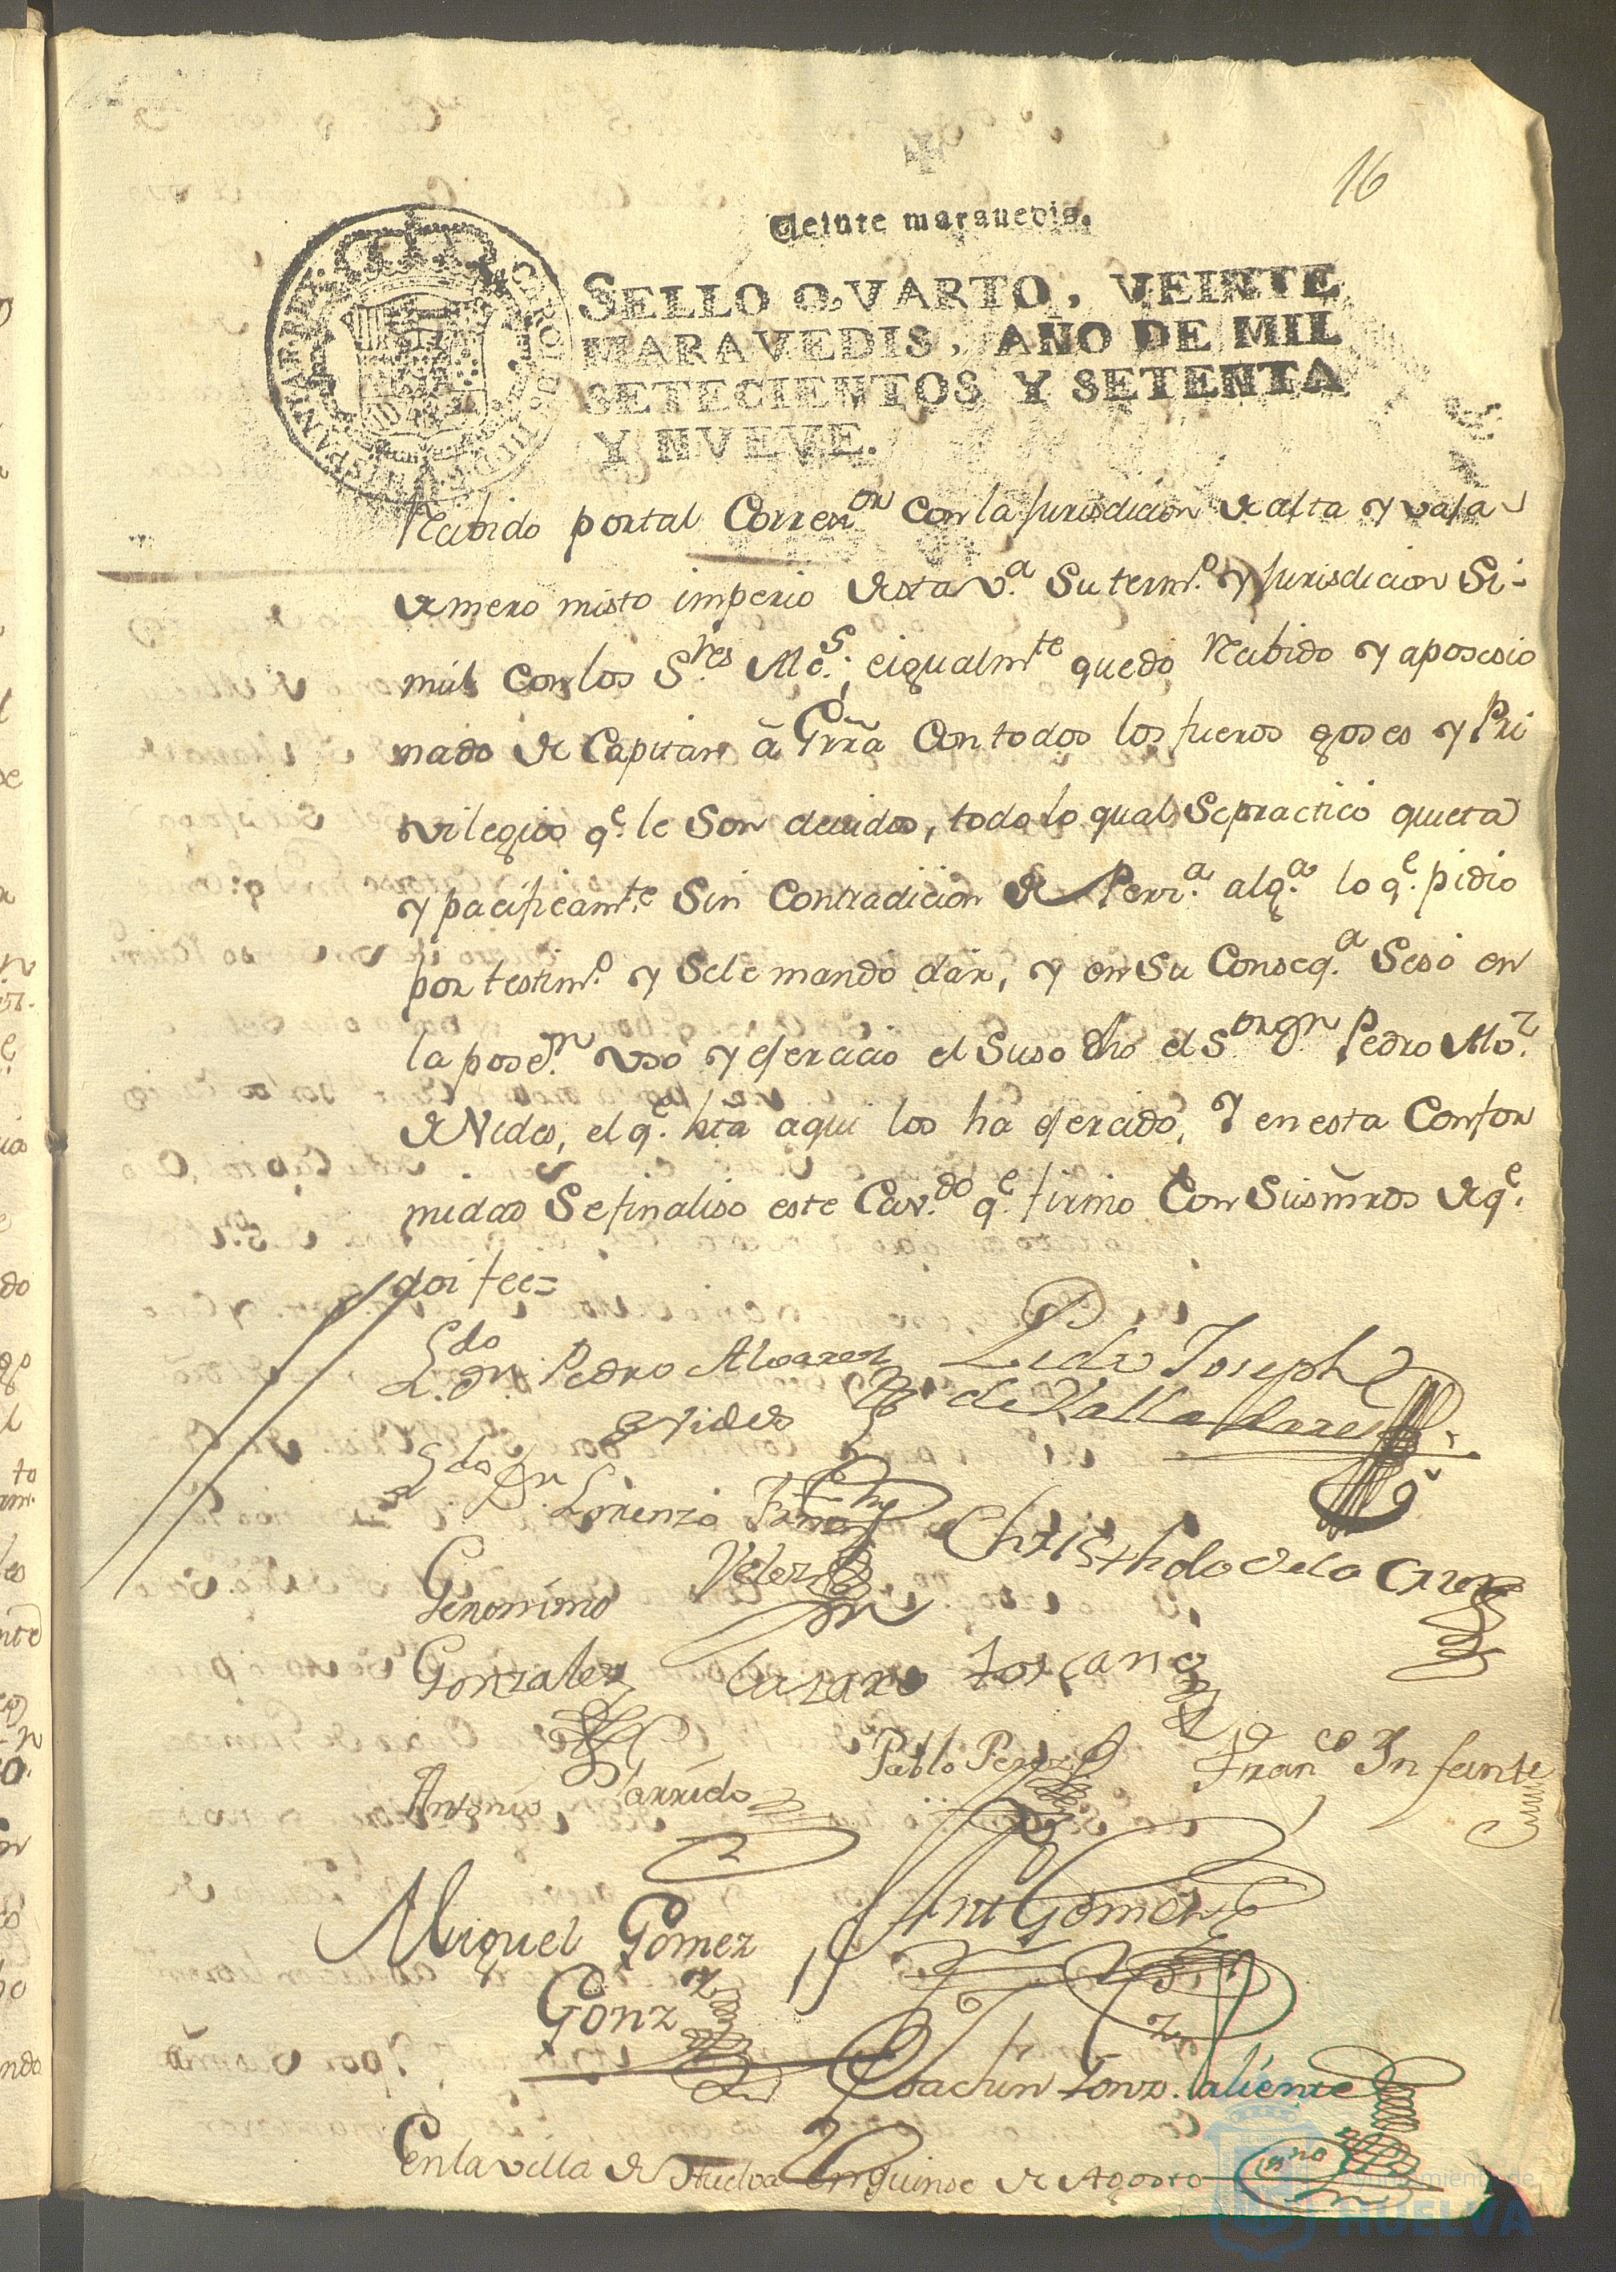 16
Veinte marauedis.
SELLO QVARTO, VEINTE
MARAVEDIS, AÑO DE MIL
SETECIENTOS Y SETENTA
Y NVEVE.
CAROLVS III D G HISPANIAR REX
Recibido por tal Correxor con la Jurisdicion de alta y vaja
de mero misto imperio de esta va. su termo. y Jurisdicion Si-
mul con los Sres. Alcs. e igualmte quedo Recibido y aposesio
nado de Capitan â Grrã Con todos los fueros goses y Pri
vilegios qe. le Son devidos, todo lo qual Se practicó quieta
y pacificamte. Sin Contradicion de Perza. alga. lo qe. pidio
por testimo. y Se le mando dar, y en su Conseqa. Sesó en
la posen. uso y exercicio el Suso dho el Sor. Dn Pedro Alvz.
de Nides, el qe. hta aqui los ha exercido, Y en esta Confor
midad Se finaliso este Cavdo. qe. firmo Con Sus mrds de qe.
doi fee=
Ldo. Dn. Pedro Alvarez
de Nides
Pedro Joseph
de Valladares
Ldo. Dn. Lorenzo
Velez
Christhl. de la Cruz
Geronimo
Gonzalez
Lazaro Toscano
Antonio Garrido
Pablo Perez
Franco. Infante
Miguel Gomez
Gonzz
Ant Gomez
Joachin Gonz. Caliente
En la villa de Huelva en quinse de Agosto
Ayuntamiento de
HUELVA